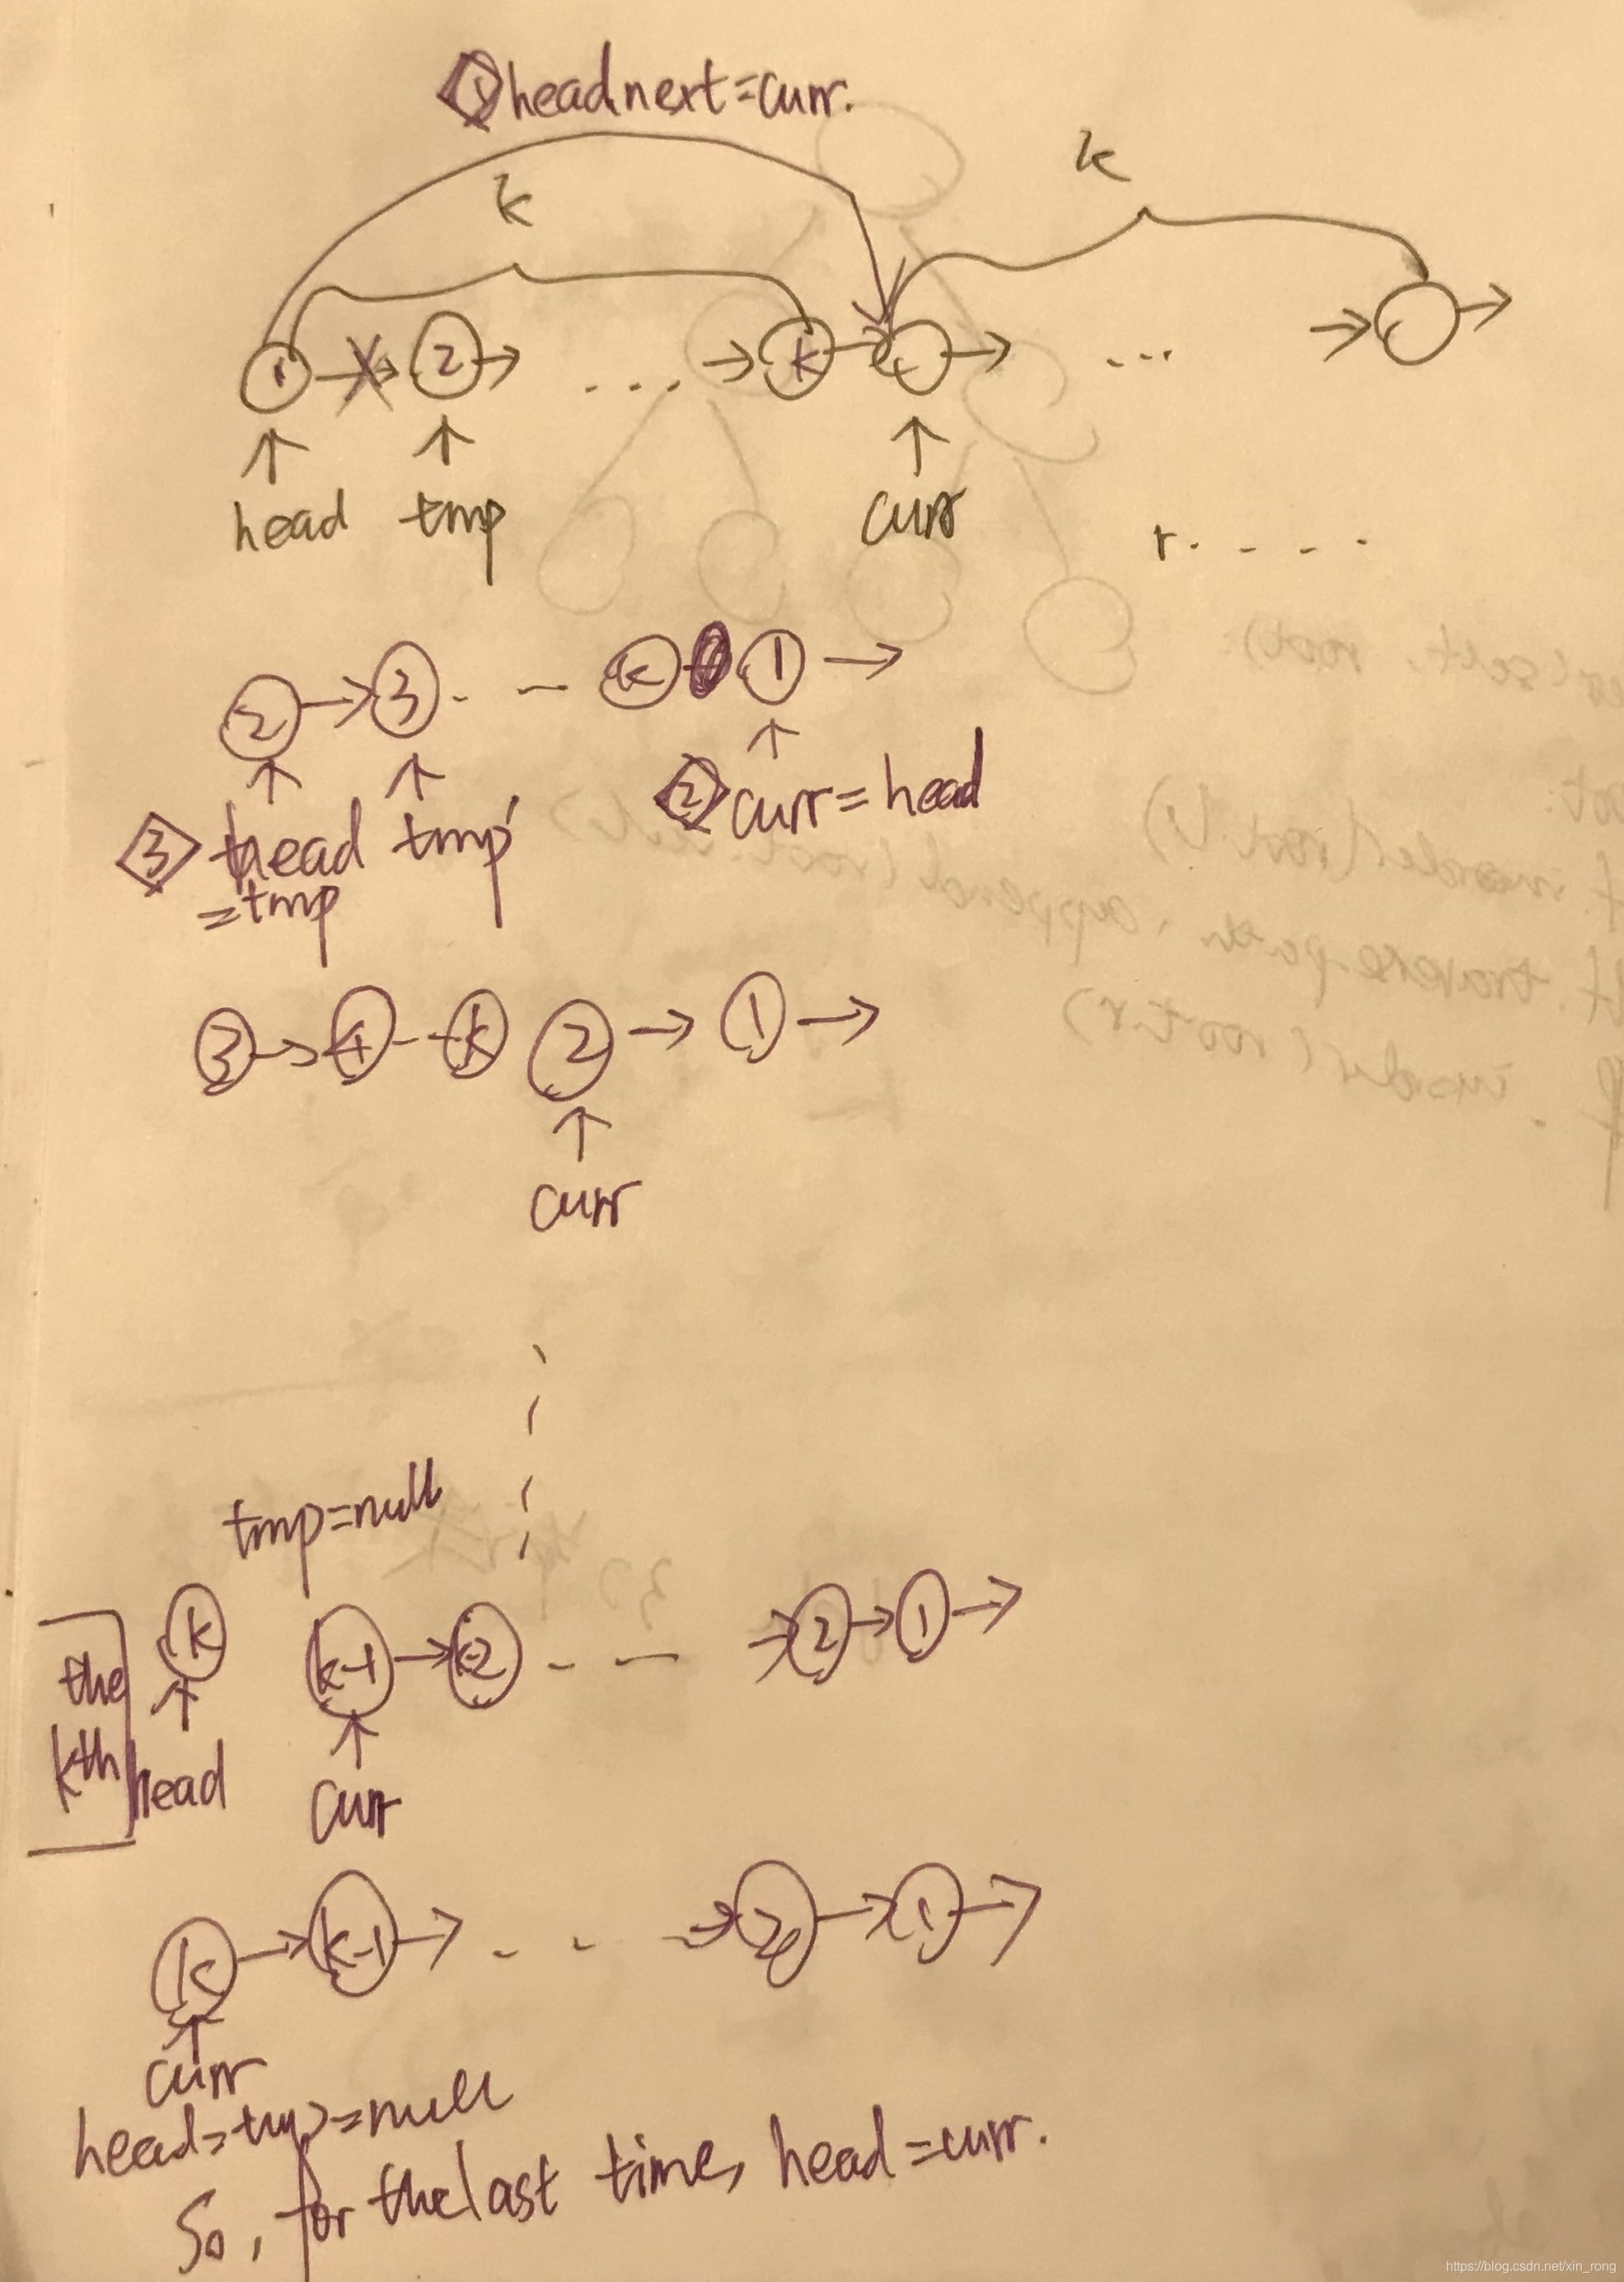 ① headnext=curr.
k
k
1 → 2 → ... → k → → ... → →
head tmp curr
r. - - -
2 → 3 - - k 1 →
② curr=head
③ head tmp'
=tmp
3 → 4 - - k 2 → 1 →
curr
tmp=null
the kth
k k-1 → k-2 - - → 2 → 1 →
head curr
k → k-1 → - - → 2 → 1 →
curr
head=tmp=null
So, for the last time, head=curr.
https://blog.csdn.net/xin_rong